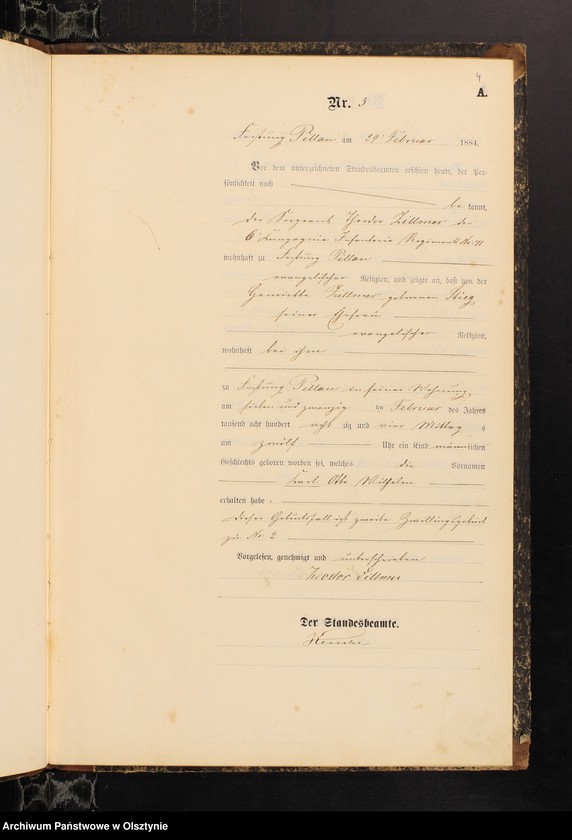 4
A.
Nr. 3
Festung Pillau am 29 Februar 1884.
Vor dem unterzeichneten Standesbeamten erschien heute, der Per-
sönlichkeit nach
bekannt,
der Sergeant Theodor Zillmer der
6 Kompagnie Infanterie Regiments Nr. 41
wohnhaft zu Festung Pillau
evangelischer Religion, und zeigte an, daß von der
Henriette Zillmer geborenen
seiner Ehefrau
evangelischer Religion,
wohnhaft bei ihm
zu Festung Pillau in seiner Wohnung,
am sieben und zwanzig ten Februar des Jahres
tausend acht hundert acht zig und vier Mittags
um zwölf Uhr ein Kind männlichen
Geschlechts geboren worden sei, welches die Vornamen
Karl Otto Wilhelm
erhalten habe.
Dieser Geburtsfall ist zweite Zwillingsgeburt
zu Nr. 2
Vorgelesen, genehmigt und unterschrieben
Theodor Zillmer
Der Standesbeamte.
Archiwum Państwowe w Olsztynie